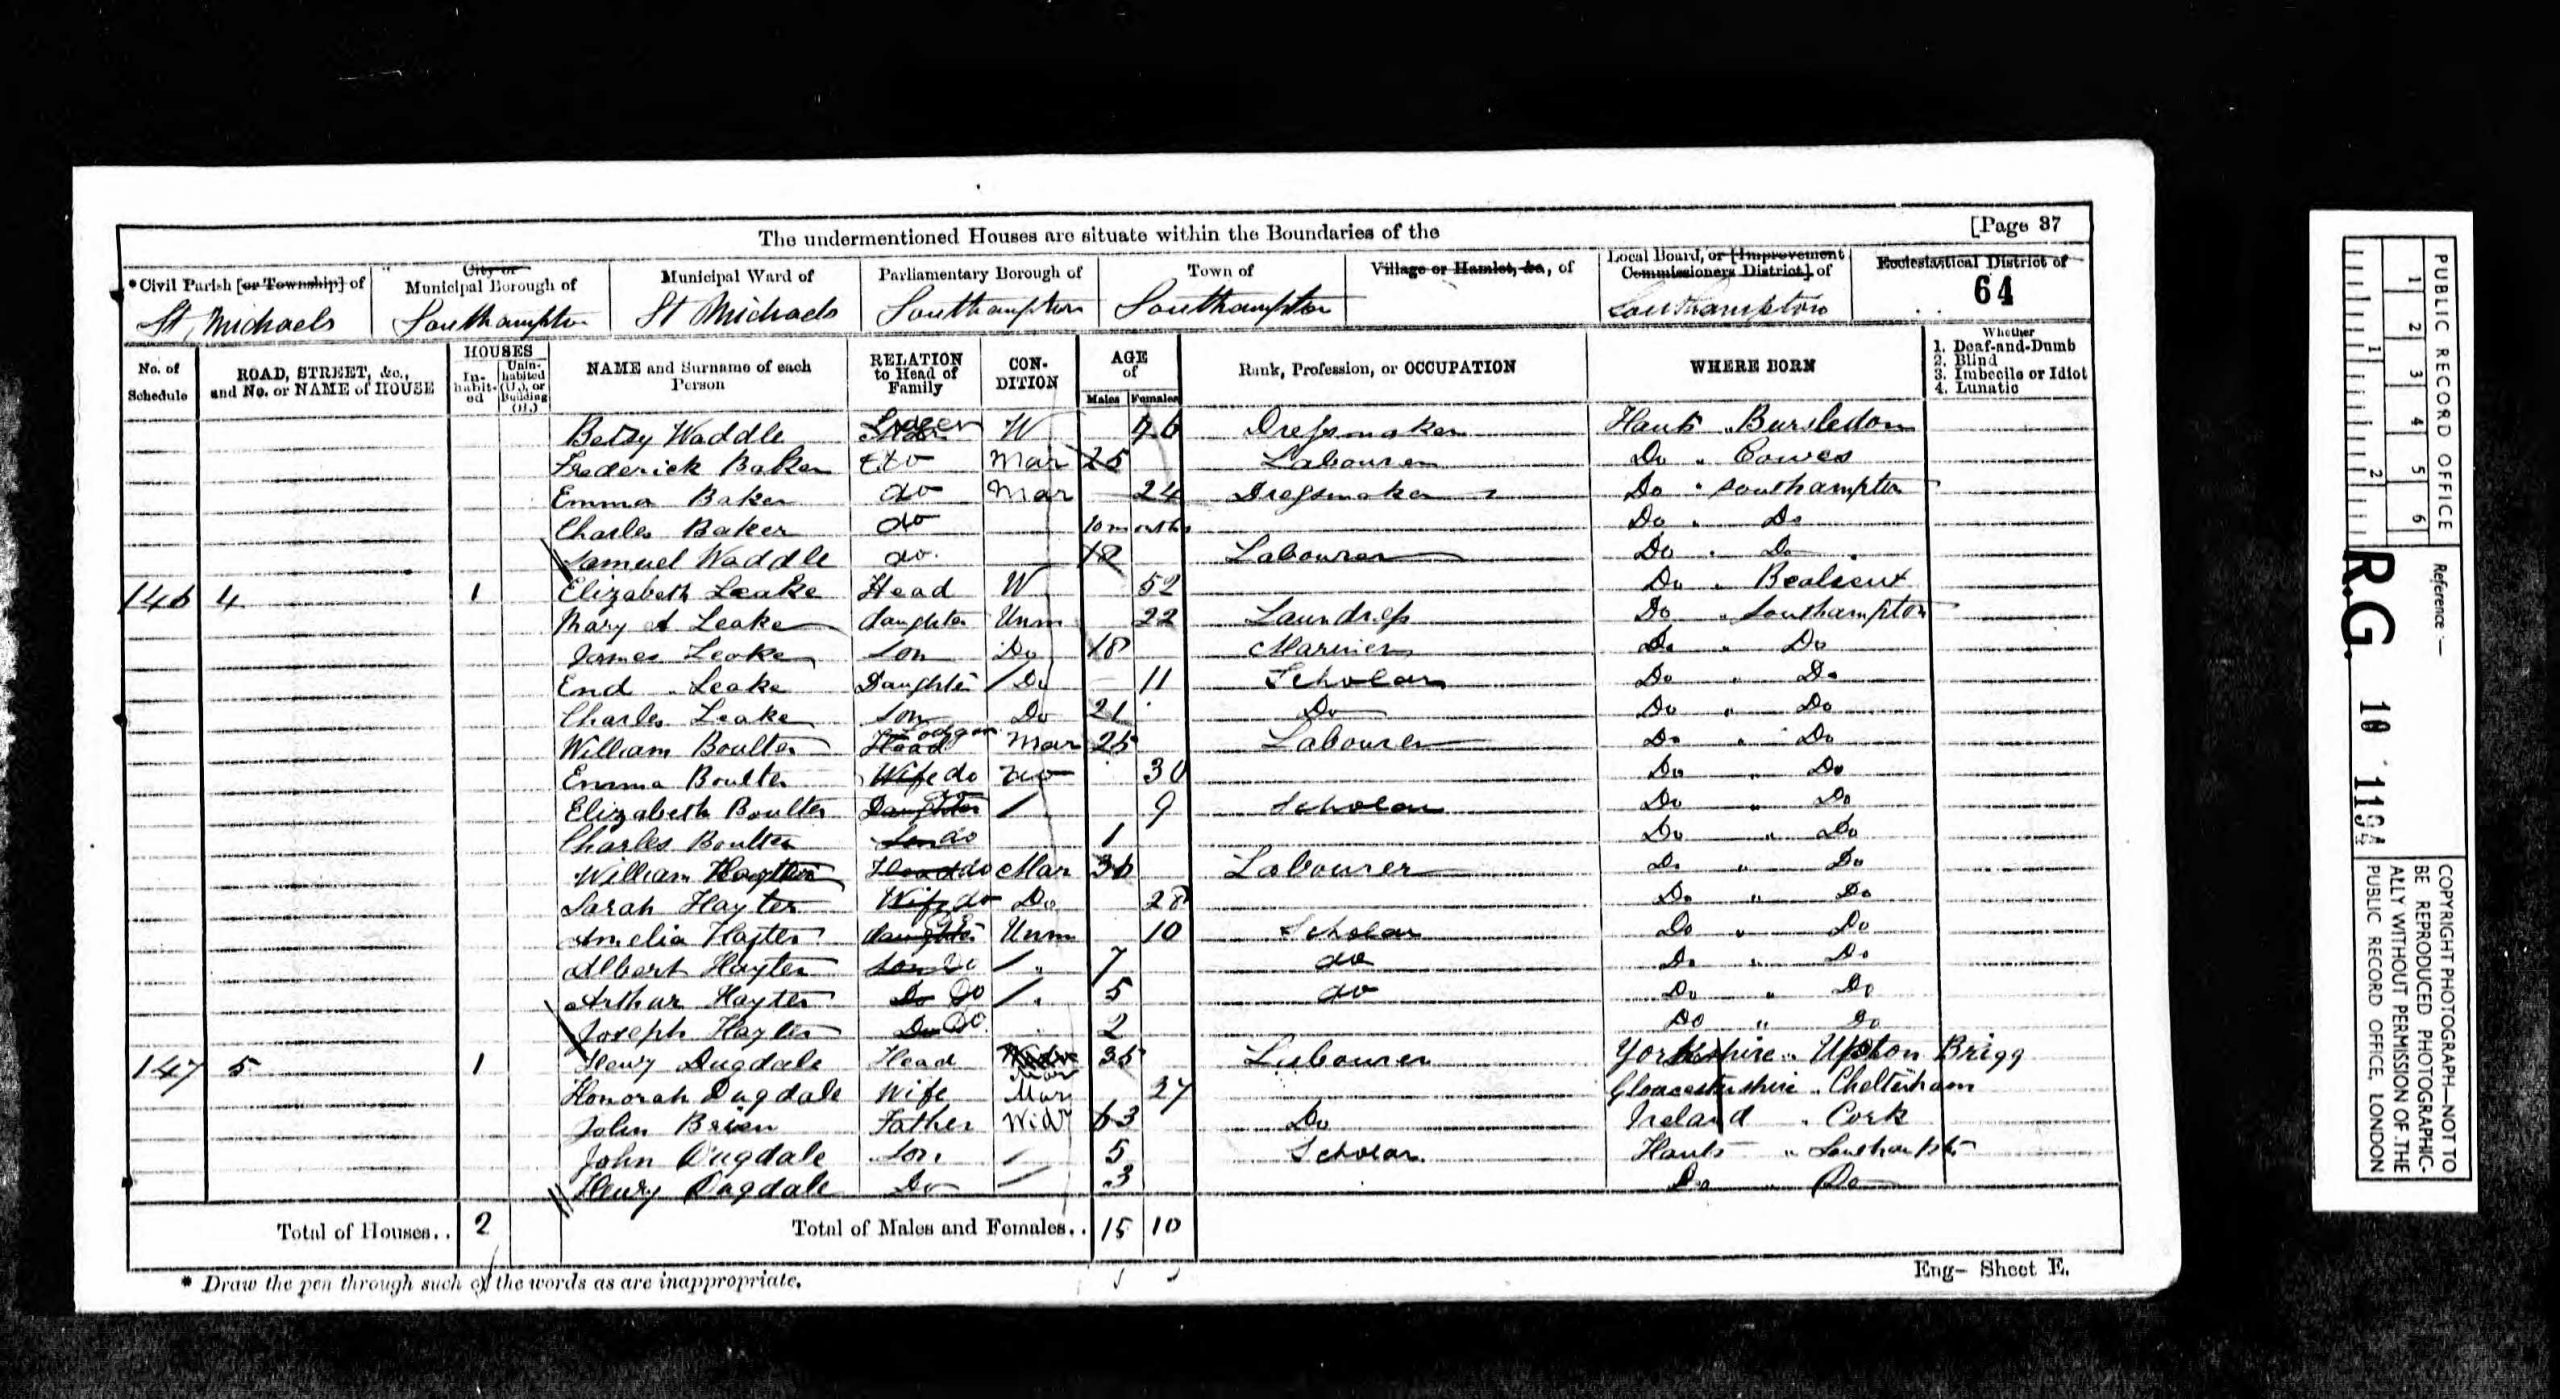 [Page 37
The undermentioned Houses are situate within the Boundaries of the
*Civil Parish [or Township] of City or Municipal Borough of Municipal Ward of Parliamentary Borough of Town of Village or Hamlet, &c., of Local Board, or [Improvement Commissioners District] of Ecclesiastical District of
St, Michaels Southampton St Michaels Southampton Southampton Southampton 64
No. of Schedule ROAD, STREET, &c., and No. or NAME of HOUSE HOUSES Inhabited Uninhabited (U.), or Building (B.) NAME and Surname of each Person RELATION to Head of Family CONDITION AGE of Males Females Rank, Profession, or OCCUPATION WHERE BORN Whether 1. Deaf-and-Dumb 2. Blind 3. Imbecile or Idiot 4. Lunatic
Betsy Waddle Lodger W Dressmaker Hants " Bursledon
Frederick Baker do Mar 25 Labourer Do " Cowes
Emma Baker do Mar 24 Dressmaker Do " Southampton
Charles Baker do 10 months Do " Do
Samuel Waddle do. 18 Labourer Do " Do
146 4 1 Elizabeth Leake Head W 52 Do "
Mary A Leake daughter Unm 22 Laundress Do " Southampton
James Leake Son Do 18 Mariner Do " Do
Leake Daughter Do 11 Scholar Do " Do
Charles Leake Son Do 21 Do Do " Do
William Boulter Head Lodger Mar 25 Labourer Do " Do
Emma Boulter Wife do do 30 Do " Do
Elizabeth Boulter Daughter 9 Scholar Do " Do
Charles Boulter Son do 1 Do " Do
William Hayter Head do Mar 36 Labourer Do " Do
Sarah Hayter Wife do Do 28 Do " Do
Amelia Hayter daughter Do Unm 10 Scholar Do " Do
Albert Hayter Son Do 7 do Do " Do
Arthur Hayter Do Do 5 do Do " Do
Joseph Hayter Do Do. 2 Do " Do
147 5 1 Henry Dugdale Head Mar 35 Labourer Yorkshire " Upton Brigg
Honorah Dugdale Wife Mar Gloucestershire " Cheltenham
John Brien Father Widr 63 Do Ireland " Cork
John Dugdale Son 5 Scholar Hants " Southampton
Henry Dugdale Do 3 Do " Do
Total of Houses.. 2 Total of Males and Females.. 15 10
* Draw the pen through such of the words as are inappropriate.
Eng- Sheet E.
PUBLIC RECORD OFFICE
1 2 3 4 5 6
1 2
Reference :-
R.G. 10 1194
COPYRIGHT PHOTOGRAPH—NOT TO
BE REPRODUCED PHOTOGRAPHIC-
ALLY WITHOUT PERMISSION OF THE
PUBLIC RECORD OFFICE, LONDON